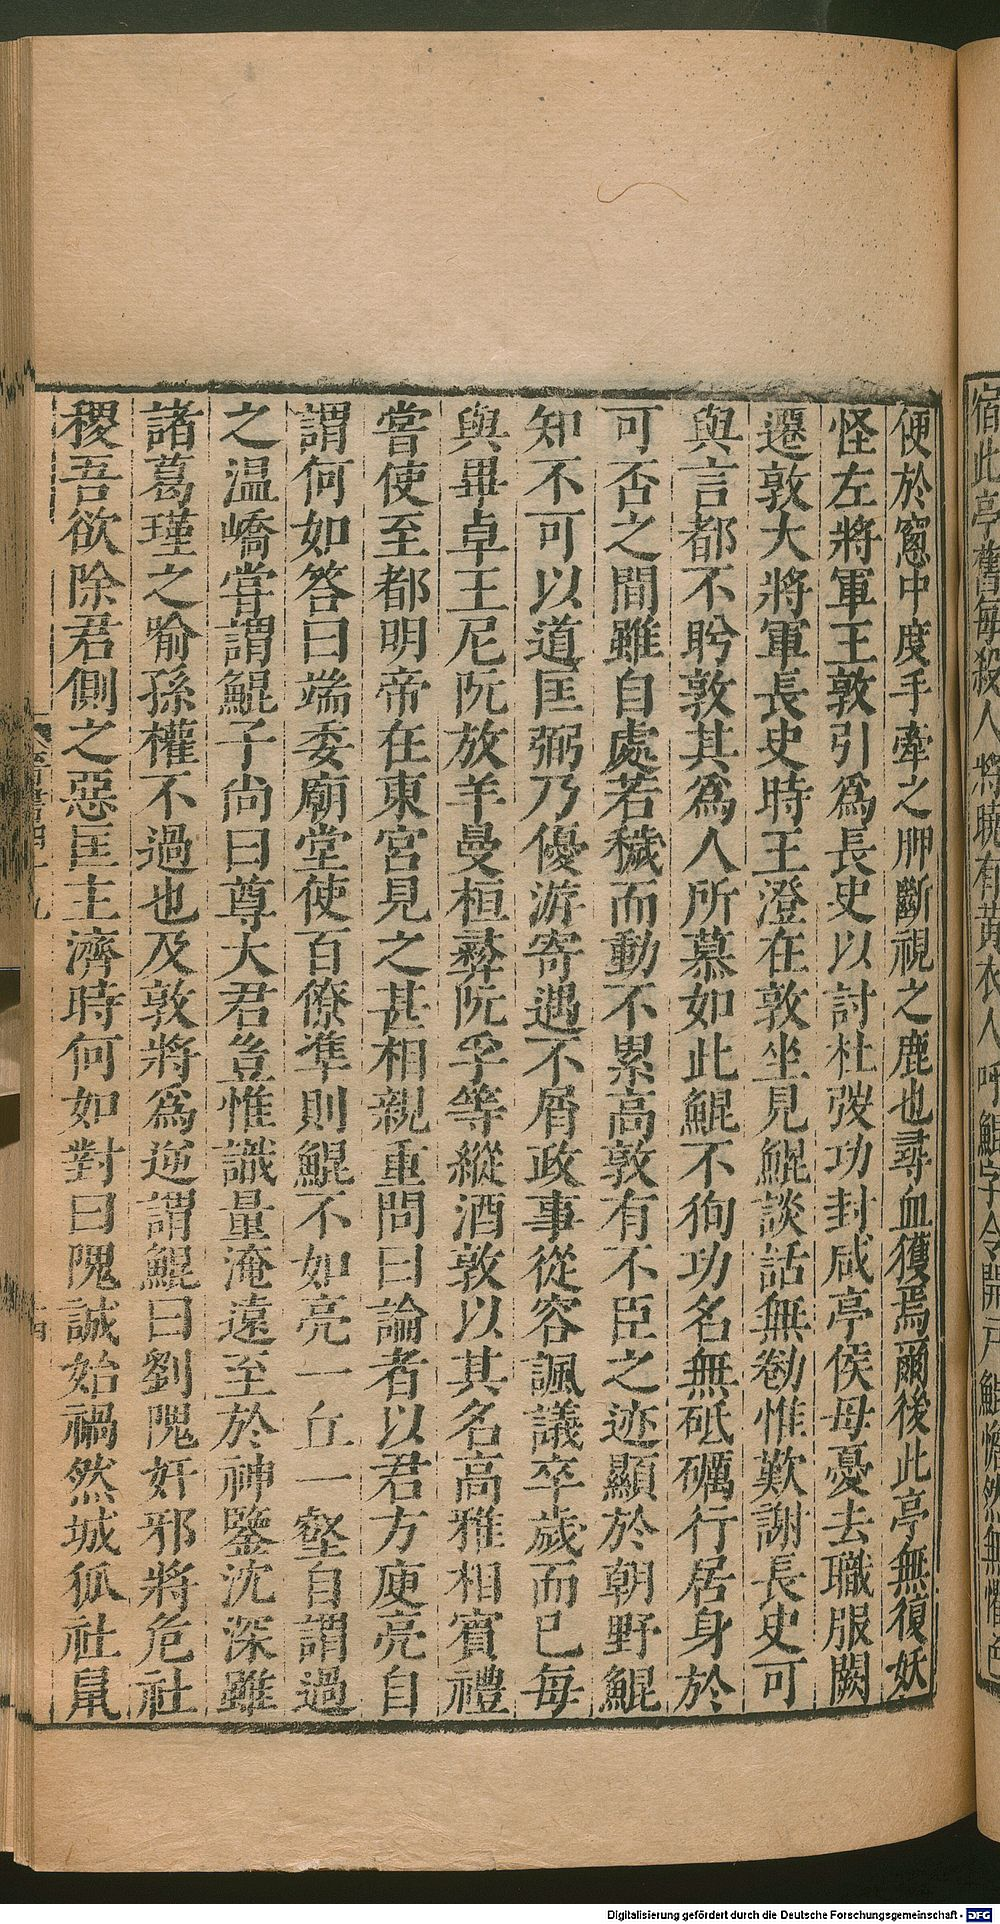 宿此亭舊每殺人將曉有黃衣人呼鯤字令開戶鯤憺然無懼色
便於窻中度手牽之胛斷視之鹿也尋血獲焉爾後此亭無復妖
怪左將軍王敦引爲長史以討杜弢功封咸亭侯母憂去職服闋
遷敦大將軍長史時王澄在敦坐見鯤談話無勌惟歎謝長史可
與言都不眄敦其爲人所慕如此鯤不徇功名無砥礪行居身於
可否之間雖自處若穢而動不累高敦有不臣之迹顯於朝野鯤
知不可以道匡弼乃優游寄遇不屑政事從容諷議卒歲而已每
與畢卓王尼阮放羊曼桓彝阮孚等縱酒敦以其名高雅相賓禮
嘗使至都明帝在東宮見之甚相親重問曰論者以君方庾亮自
謂何如答曰端委廟堂使百僚準則鯤不如亮一丘一壑自謂過
之温嶠嘗謂鯤子尚曰尊大君豈惟識量淹遠至於神鑒沈深雖
諸葛瑾之喻孫權不過也及敦將爲逆謂鯤曰劉隗奸邪將危社
稷吾欲除君側之惡匡主濟時何如對曰隗誠始禍然城狐社鼠
Digitalisierung gefördert durch die Deutsche Forschungsgemeinschaft - DFG